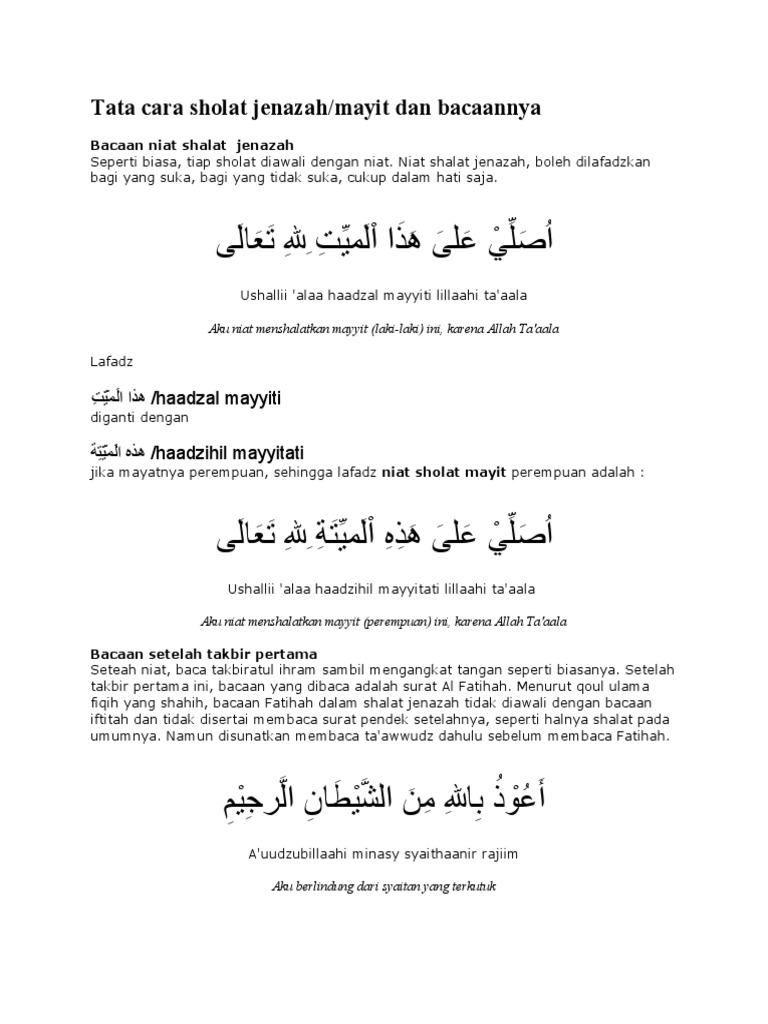 Tata cara sholat jenazah/mayit dan bacaannya
Bacaan niat shalat  jenazah
Seperti biasa, tiap sholat diawali dengan niat. Niat shalat jenazah, boleh dilafadzkan
bagi yang suka, bagi yang tidak suka, cukup dalam hati saja.
اُصَلِّيْ عَلىَ هَذَا اْلَميِّتِ ِللهِ تَعَالَى
Ushallii 'alaa haadzal mayyiti lillaahi ta'aala
Aku niat menshalatkan mayyit (laki-laki) ini, karena Allah Ta'aala
Lafadz
هذا الَميِّتِ /haadzal mayyiti
diganti dengan
هذه الَميِّتِة /haadzihil mayyitati
jika mayatnya perempuan, sehingga lafadz niat sholat mayit perempuan adalah :
اُصَلِّيْ عَلىَ هَذِهِ اْلَميِّتَةِ ِللهِ تَعَالَى
Ushallii 'alaa haadzihil mayyitati lillaahi ta'aala
Aku niat menshalatkan mayyit (perempuan) ini, karena Allah Ta'aala
Bacaan setelah takbir pertama
Seteah niat, baca takbiratul ihram sambil mengangkat tangan seperti biasanya. Setelah
takbir pertama ini, bacaan yang dibaca adalah surat Al Fatihah. Menurut qoul ulama
fiqih yang shahih, bacaan Fatihah dalam shalat jenazah tidak diawali dengan bacaan
iftitah dan tidak disertai membaca surat pendek setelahnya, seperti halnya shalat pada
umumnya. Namun disunatkan membaca ta'awwudz dahulu sebelum membaca Fatihah.
أَعُوْذُ بِاللهِ مِنَ الشَّيْطَانِ الَّرجِيْمِ
A'uudzubillaahi minasy syaithaanir rajiim
Aku berlindung dari syaitan yang terkutuk